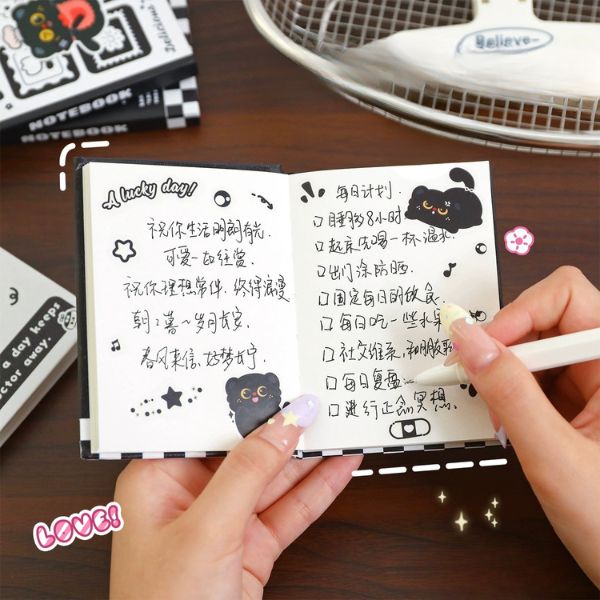 Delicious
NOTEBOOK
NOTEBOOK
Believe~
A lucky day!
祝你生活明朗有光.
可爱一如往常.
祝你理想常伴. 终得浪漫
朝朝暮暮 岁月长安.
春风来信, 好梦长宁
每日计划.
□ 睡够8小时
□ 起来先喝一杯温水.
□ 出门涂防晒.
□ 固定每日的饮食.
□ 每日吃一些水果
□ 社交维系, 和朋友聊
□ 每日复盘
□ 进行正念冥想.
a day keeps
ctor away.
LOVE!